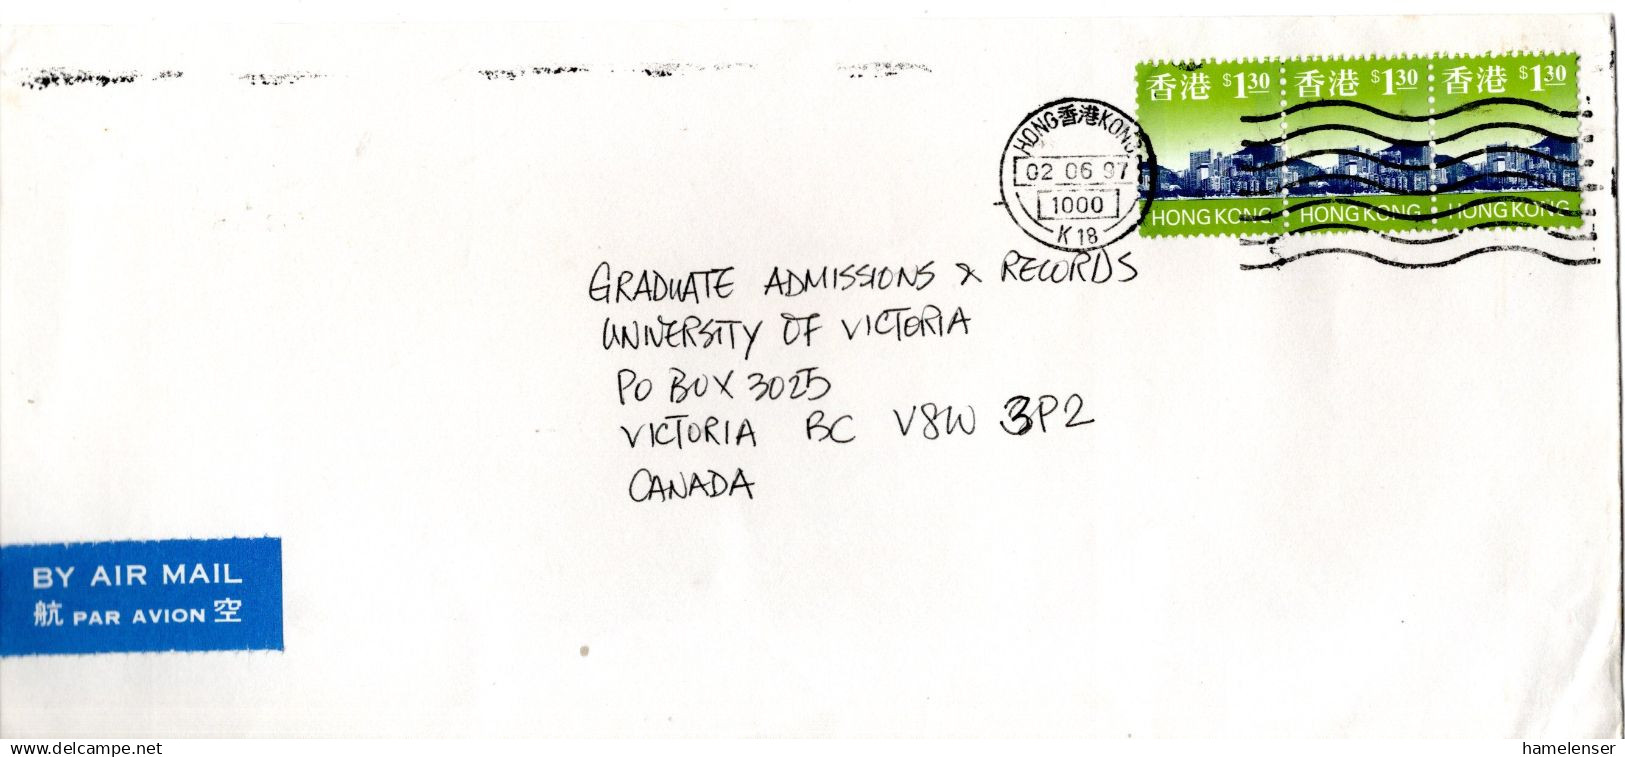 香港 $1.30 香港 $1.30 香港 $1.30
HONG 香港 KONG
02 06 97
1000
K 18
HONG KONG HONG KONG HONG KONG
GRADUATE ADMISSIONS & RECORDS
UNIVERSITY OF VICTORIA
PO BOX 3025
VICTORIA BC V8W 3P2
CANADA
BY AIR MAIL
航 PAR AVION 空
www.delcampe.net
hamelenser